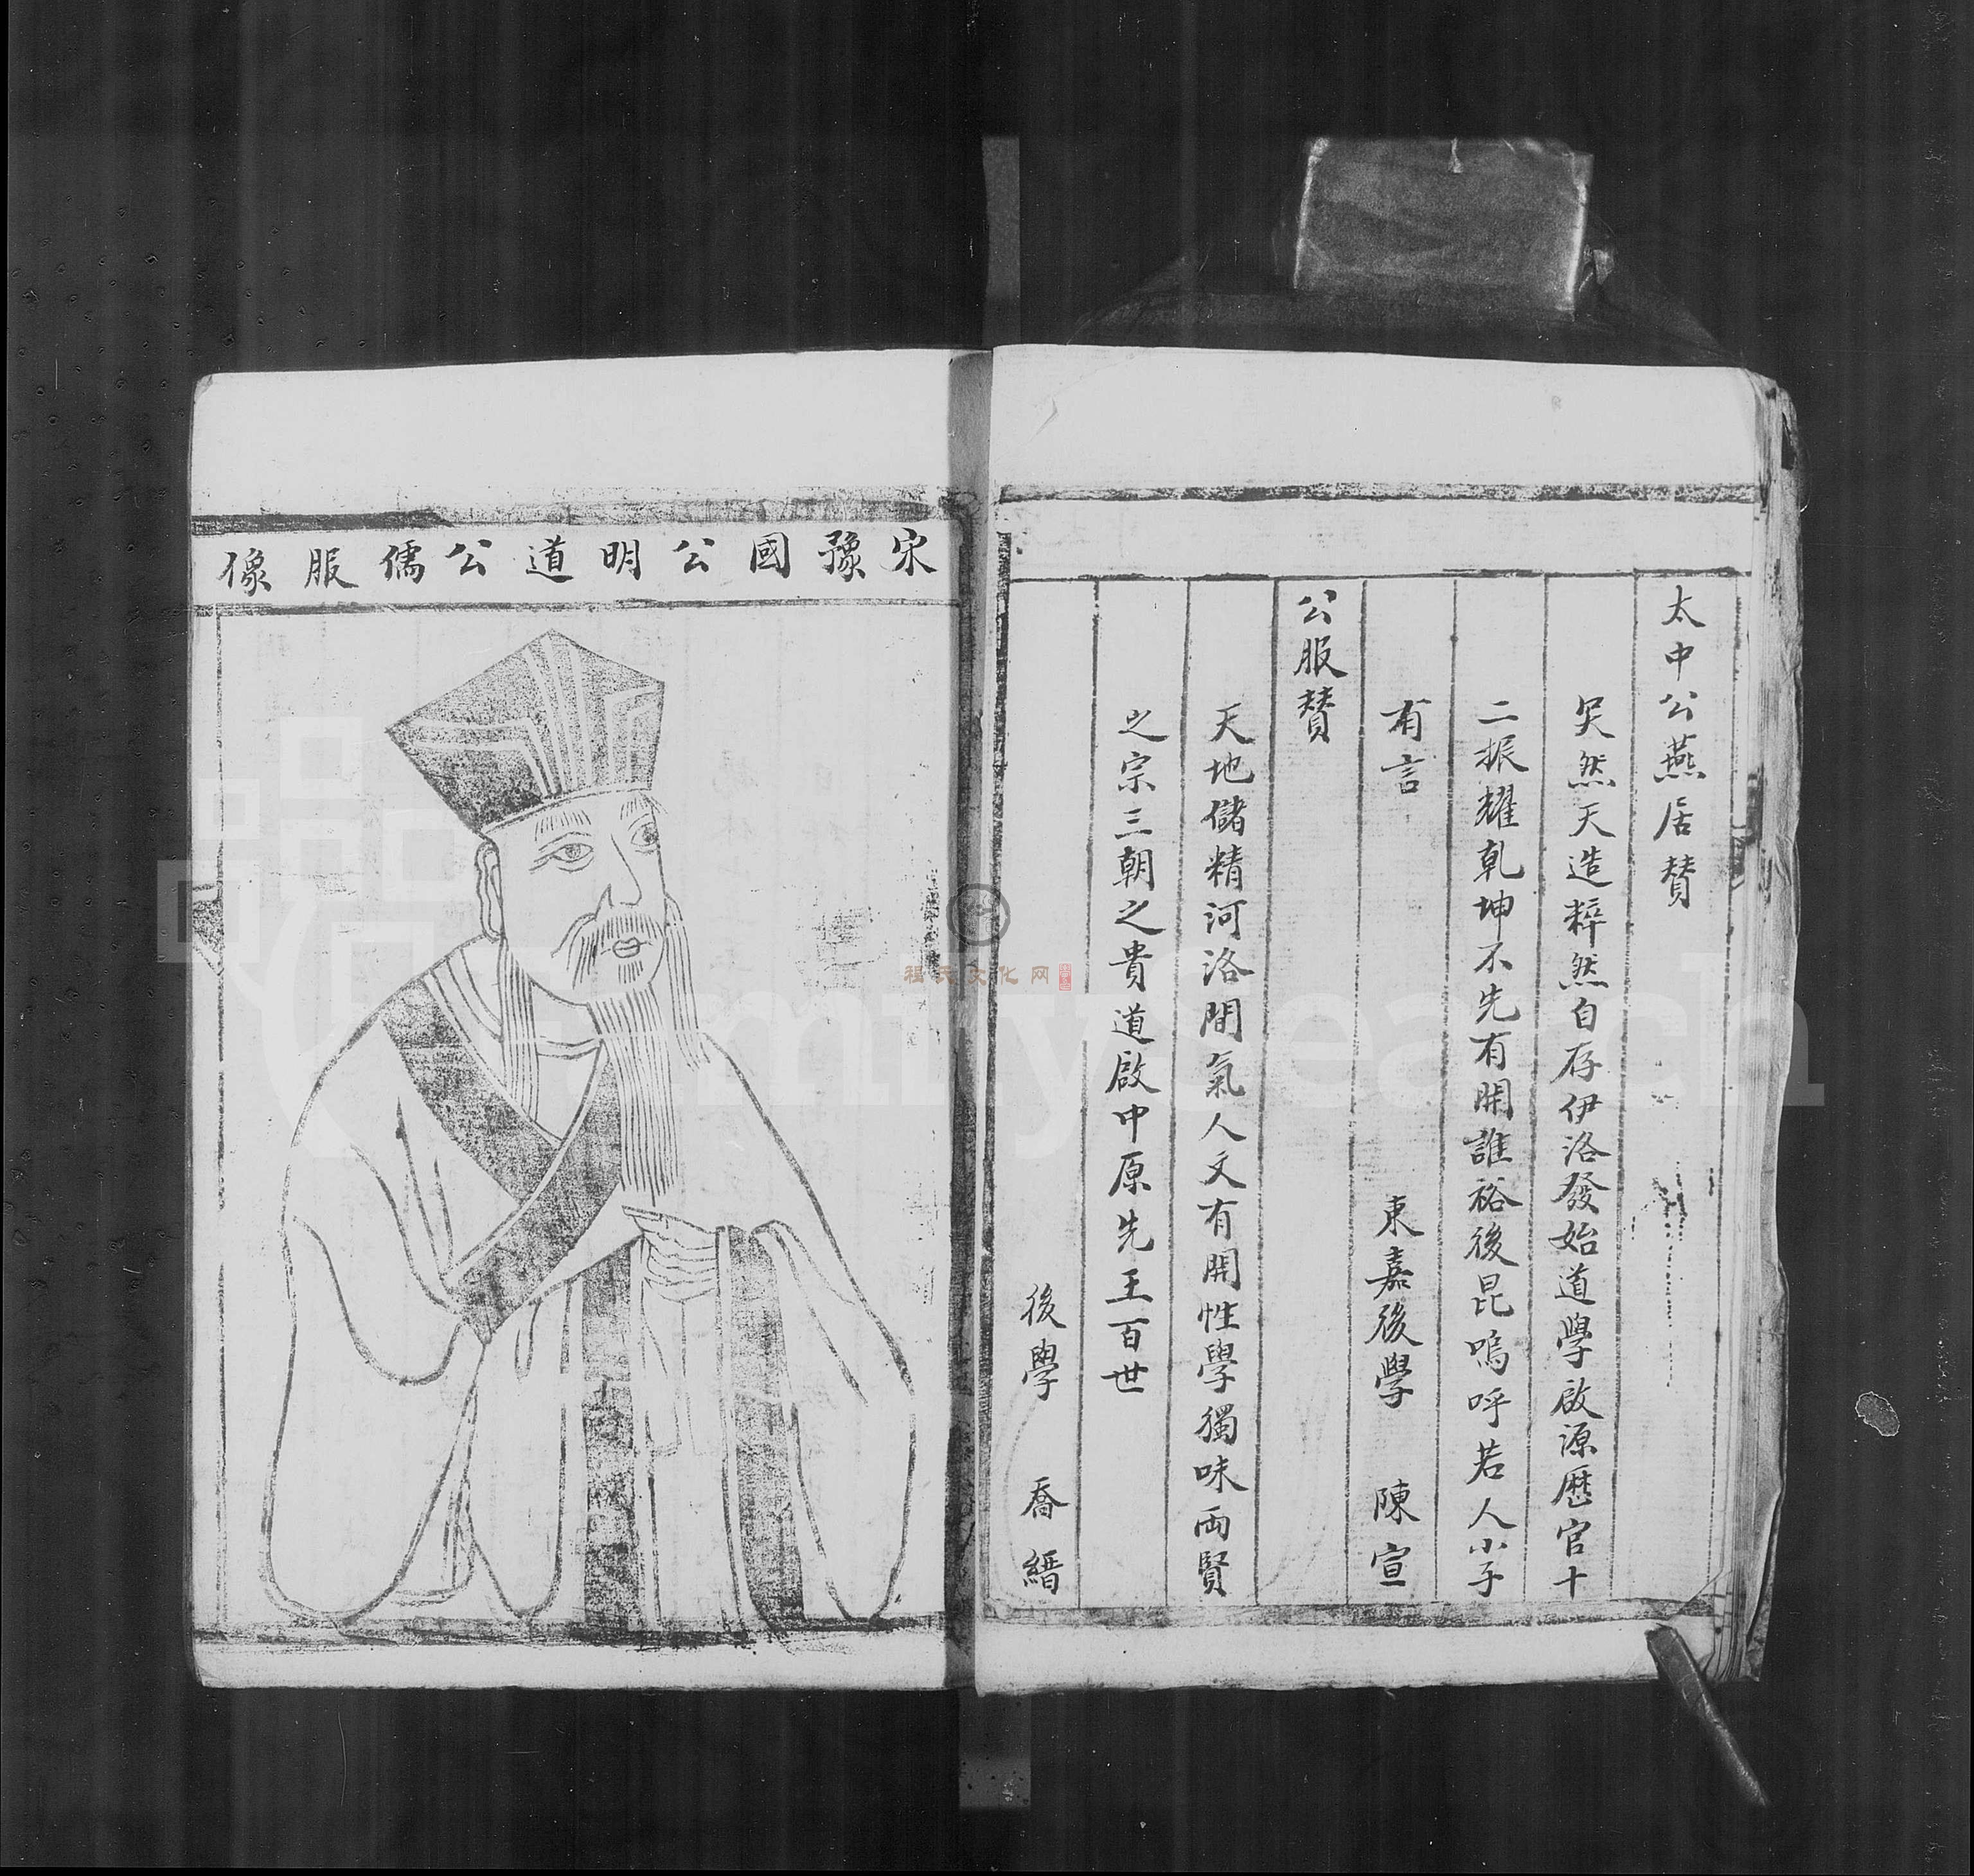 太中公燕居贊
癸然天造粹然自存伊洛發始道學啟源歷官十
二振耀乾坤不先有開誰裕後昆嗚呼若人小子
有言
東嘉後學 陳宣
公服贊
天地儲精河洛間氣人文有開性學獨味兩賢
之宗三朝之貴道啟中原先王百世
後學 喬縉
宋豫國公明道公儒服像
程氏文化网
FamilySearch